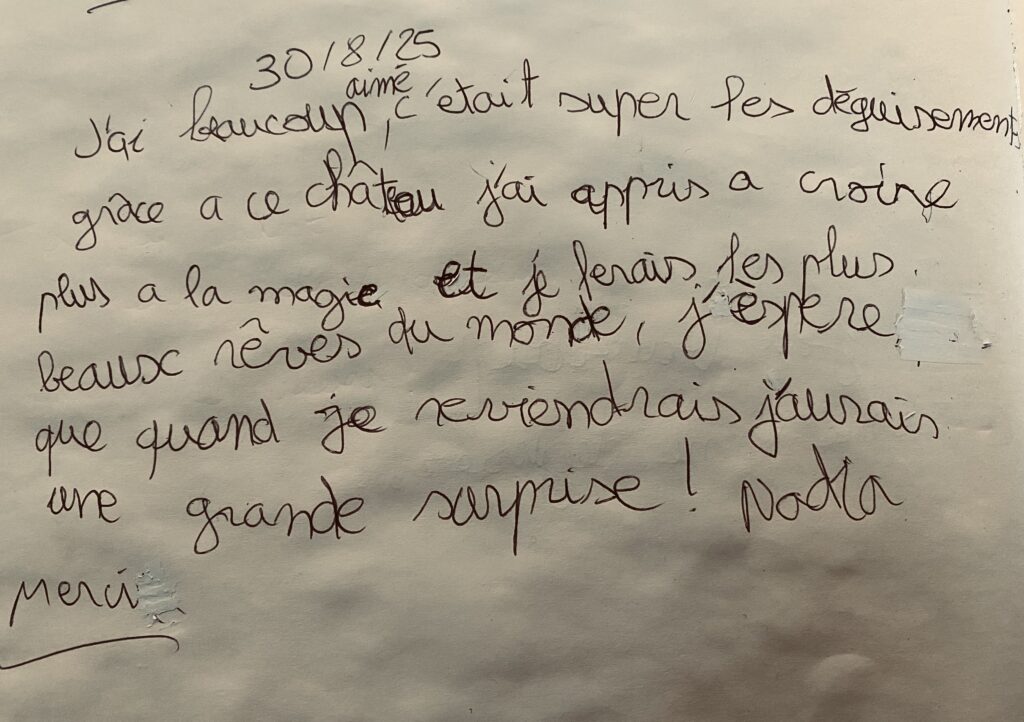 30/8/25
J'ai beaucoup aimé, c'était super les déguisements
grâce a ce château j'ai appris a croire
plus a la magie et je ferais les plus
beaux rêves du monde, j'éspère
que quand je reviendrais j'aurais
une grande surprise !
Merci